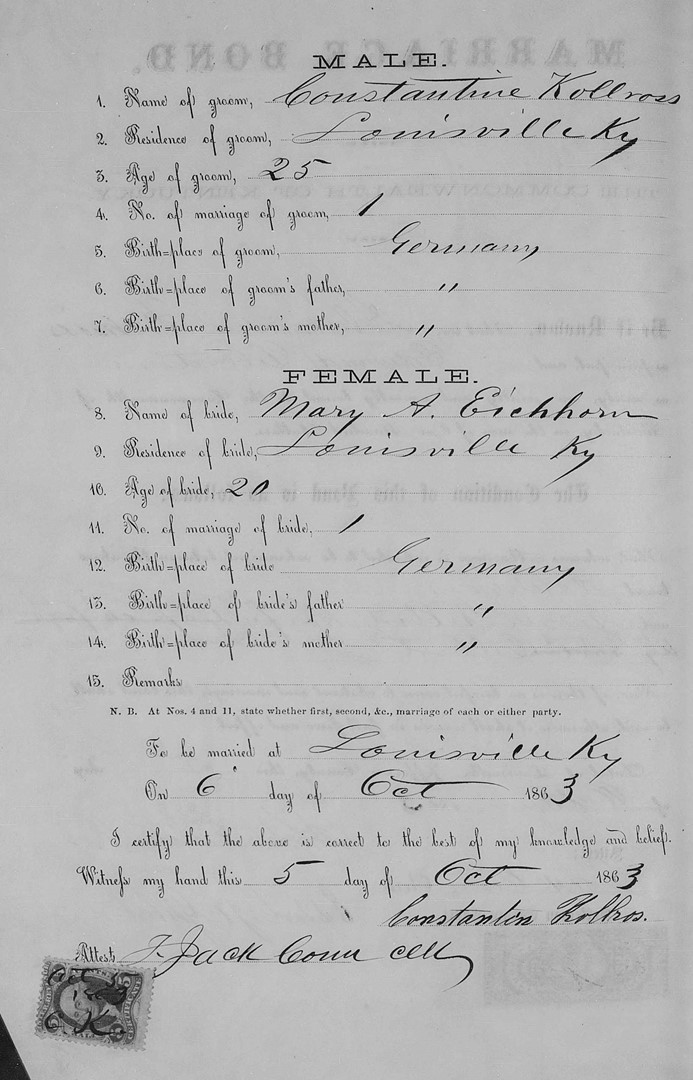 MARRIAGE BOND.
MALE.
1. Name of groom, Constantine Kollross
2. Residence of groom, Louisville Ky
3. Age of groom, 25
4. No. of marriage of groom, 1
5. Birth=place of groom, Germany
6. Birth=place of groom's father, "
7. Birth=place of groom's mother, "
FEMALE.
8. Name of bride, Mary A. Eichhorn
9. Residence of bride, Louisville Ky
10. Age of bride, 20
11. No. of marriage of bride, 1
12. Birth=place of bride Germany
13. Birth=place of bride's father "
14. Birth=place of bride's mother "
15. Remarks
N. B. At Nos. 4 and 11, state whether first, second, &c., marriage of each or either party.
To be married at Louisville Ky
On 6 day of Oct 1863
I certify that the above is correct to the best of my knowledge and belief.
Witness my hand this 5 day of Oct 1863
Constantin Kollros.
Attest J. Jack Conn